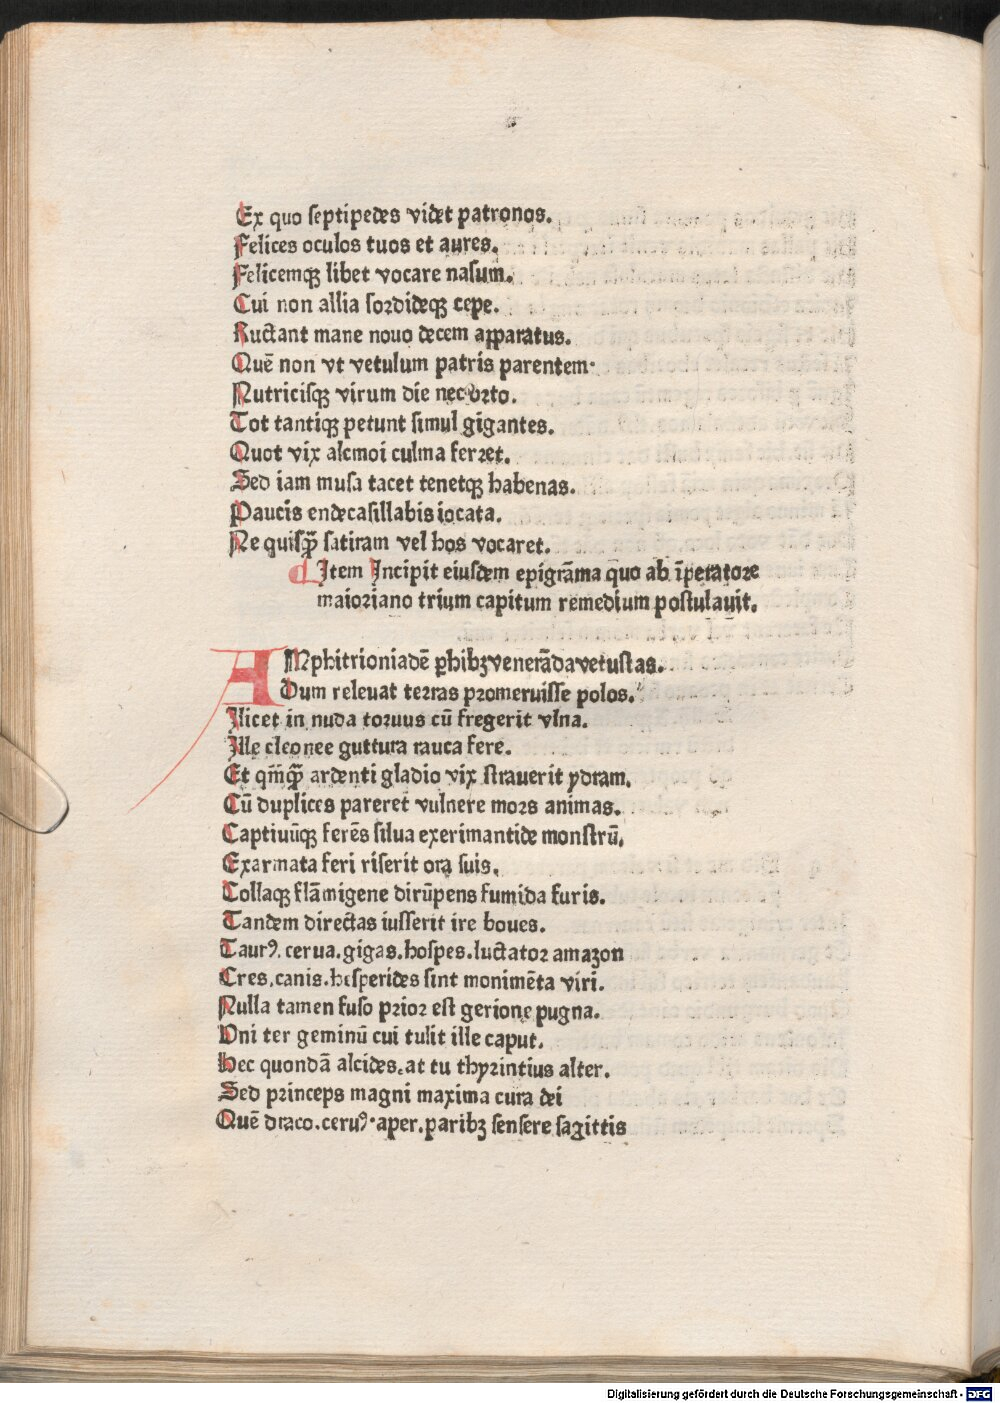 Ex quo septipedes videt patronos.
Felices oculos tuos et aures.
Felicemqꝫ libet vocare nasum.
Cui non allia sordideqꝫ cepe.
Ructant mane nouo decem apparatus.
Quē non vt vetulum patris parentem·
Nutricisqꝫ virum die nec orto.
Tot tantiqꝫ petunt simul gigantes.
Quot vix alcmoi culma ferret.
Sed iam musa tacet tenetqꝫ habenas.
Paucis endecasillabis iocata.
Ne quisqꝫ̄ satiram vel hos vocaret.
Item Incipit eiusdem epigrāma quo ab īperatore
maioriano trium capitum remedium postulauit.
AMphitrioniadē phibꝫ venerāda vetustas.
Dum releuat terras promeruisse polos.
Ilicet in nuda toruus cū fregerit vlna.
Ille cleonee guttura rauca fere.
Et qm̄qꝫ̄ ardenti gladio vix strauerit ydram.
Cū duplices pareret vulnere mors animas.
Captiuūqꝫ ferēs silua exerimantide monstrū.
Exarmata feri riserit ora suis.
Collaqꝫ flāmigene dirūpens fumida furis.
Tandem directas iusserit ire boues.
Taurꝰ. cerua. gigas. hospes. luctator amazon
Cres. canis. hesperides sint monimēta viri.
Nulla tamen fuso prior est gerione pugna.
Vni ter geminū cui tulit ille caput.
Hec quondā alcides. at tu thyrintius alter.
Sed princeps magni maxima cura dei
Quē draco. ceruꝰ· aper. paribꝫ sensere sagittis
Digitalisierung gefördert durch die Deutsche Forschungsgemeinschaft - DFG